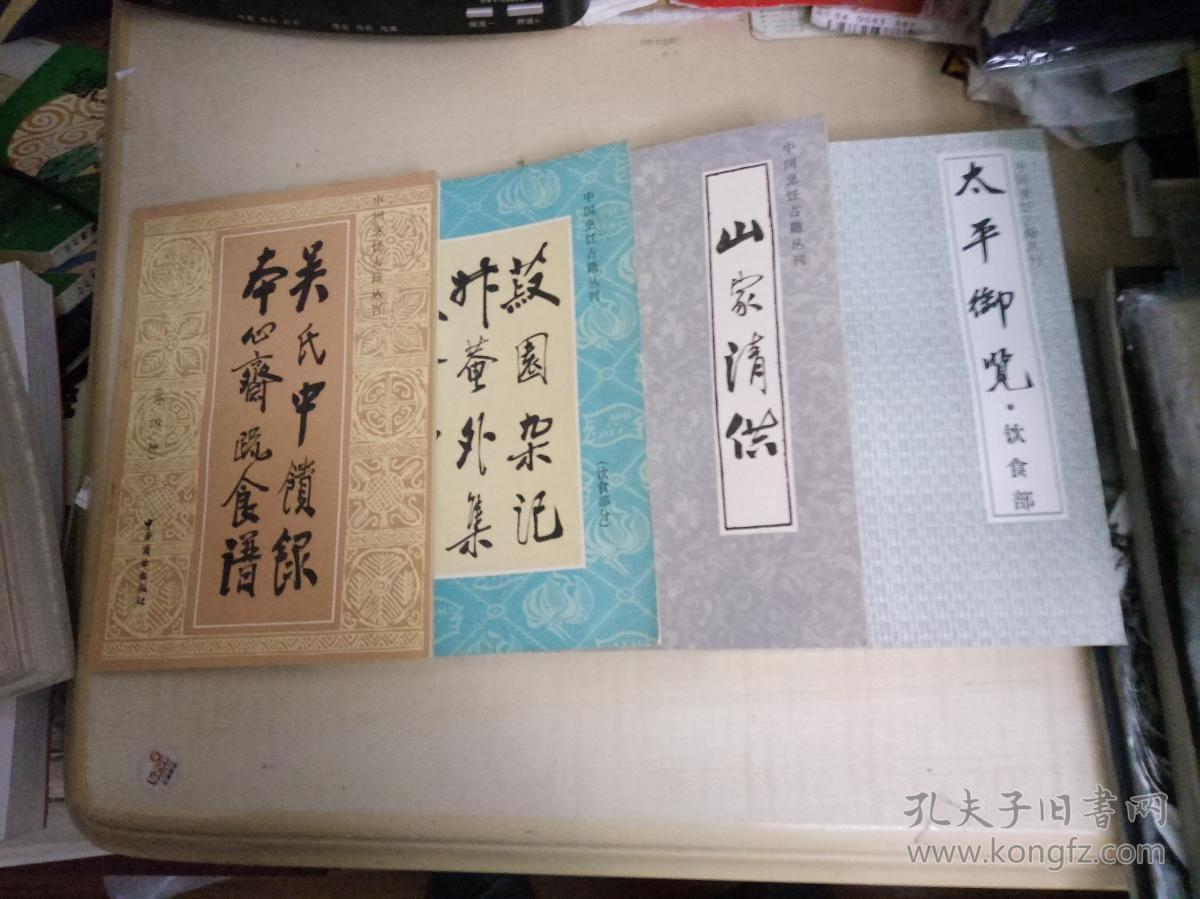 中国烹饪古籍丛刊
吴氏中馈录
本心斋疏食谱
（外四种）
中国商业出版社
中国烹饪古籍丛刊
菽园杂记
升菴外集
（饮食部分）
中国烹饪古籍丛刊
山家清供
中国烹饪古籍丛刊
太平御览·饮食部
孔夫子旧书网
www.kongfz.com